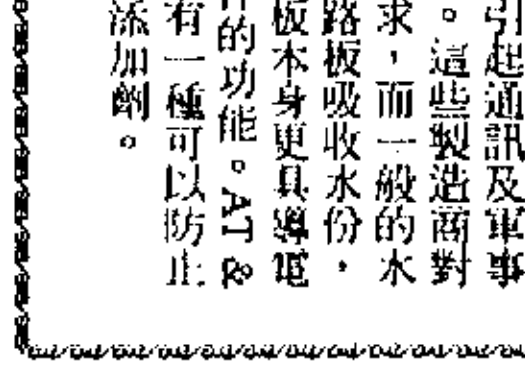 引起通訊及軍事
。這些製造商對
求，而一般的水
路板吸收水份，
板本身更具導電
的功能。AT&
有一種可以防止
添加劑。